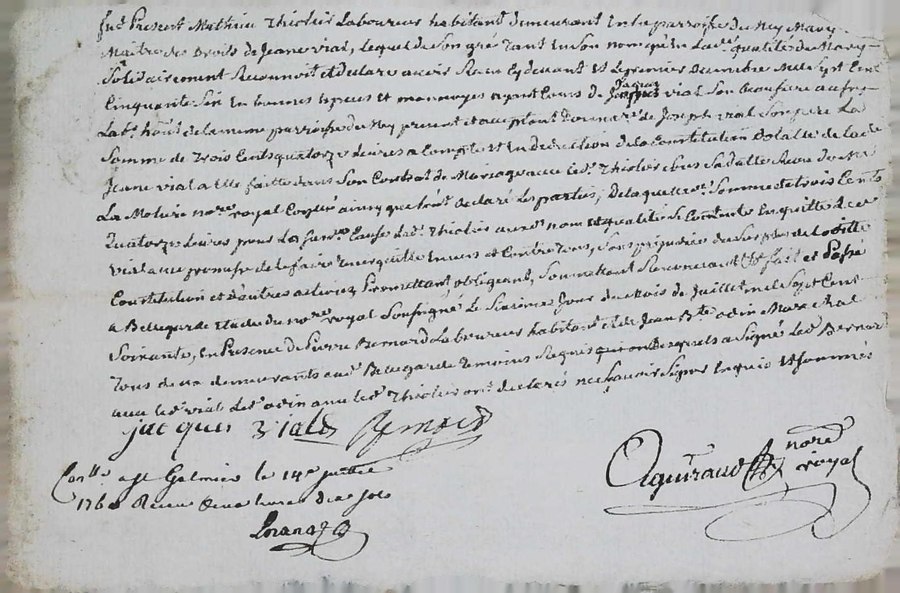 fut Present Mathieu Thiolier Laboureur habitant demeurant En la parroisse du Mey Mary
Maitre des Droits de Jeane vial, Lequel de Son gré tant En Son nom qu'En lad. qualité de Mary
Solidairement Reconnoit et declare avoir Receu Cydevant et Le premier decembre Mil Sept Cent
Cinquante Six En bonnes Espèces et monnoyes ayant Cours de Jacques vial Son beaufrere aussy
Lab. habt. de la meme parroisse du Mey present et acceptant Donnare. de Joseph vial Son pere La
Somme de Trois Cents quatorze Livres a Compte et En deduction de la Constitution Dotalle de lade.
Jeane vial a Elle faitte dans Son Contrat de Mariage avec led. Thiolier
La Moliere nore. royal ainsy que l'ont declaré Les parties, De laquelle Somme de trois Cents
quatorze Livres pour La Susd. Cause Led. Thiolier auxd. nom et qualité Se Contente En quitte led.
vial avec promesse de le faire tenir quitte Envers et Contre tous, Sans prejudice du Surplus de Laditte
Constitution et d'autres actions, Promettant, obligeant, Soumettant Renonceant &c. fait et Passé
a Bellegarde Etude du nore. royal Soussigné Le Sixieme Jour du Mois de Juillet mil Sept Cent
Soixante, En Presence de Pierre Bernard Laboureur habitant et de Jean Bte. odin Marechal
Tous deux demeurants aud. Bellegarde Temoins Requis a Signé Led. Bernard
avec led. vial Led. odin avec led. Thiolier ont declarés ne Sçavoir Signer Enquis Et Sommés
jacques vial Bernard
Conllé a St Galmier le 14e juillet
1760 Receu
Aguiraud nore royal